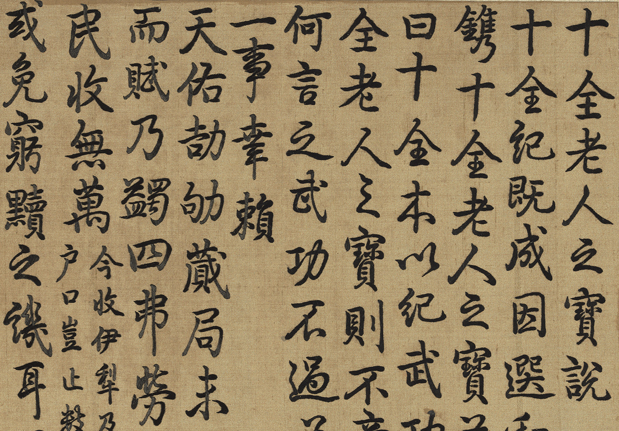 十全老人之寶說
十全記既成因選
鐫十全老人之寶
曰十全本以紀武功
全老人之寶則不
何言之武功不過
一事幸賴
天佑劼劬蕆局未
而賦乃蠲四弗勞
民收無萬
今收伊犁乃
户口豈止數
或免窮黷之譏耳